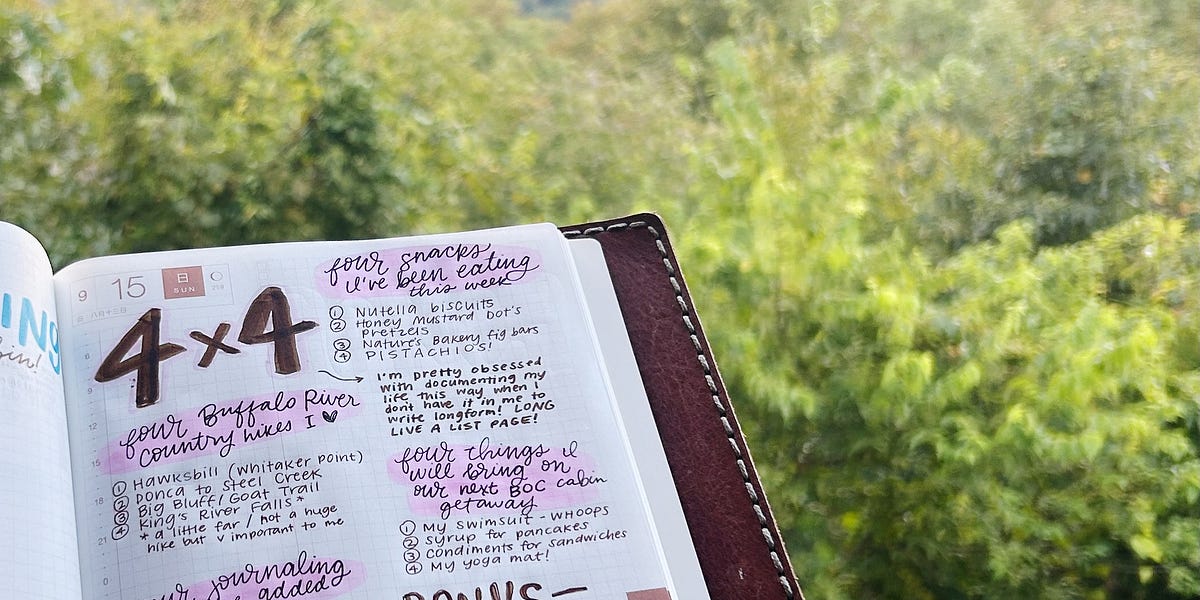 ING
9 15 日 SUN
八月十三日
4x4
four Buffalo River
country hikes I ♥
① Hawksbill (Whitaker Point)
② Ponca to Steel Creek
③ Big Bluff/Goat Trail
④ King's River Falls*
* a little far / not a huge
hike but v important to me
journaling
added
four snacks
I've been eating
this week
① Nutella biscuits
② Honey Mustard Dot's
Pretzels
③ Nature's Bakery fig bars
④ PISTACHIOS!
I'm pretty obsessed
with documenting my
life this way when I
dont have it in me to
write longform! LONG
LIVE A LIST PAGE!
four things I
will bring on
our next BOC cabin
getaway
① My swimsuit - WHOOPS
② Syrup for pancakes
③ Condiments for sandwiches
④ My yoga mat!
BONUS—
6
9
12
15
18
21
0